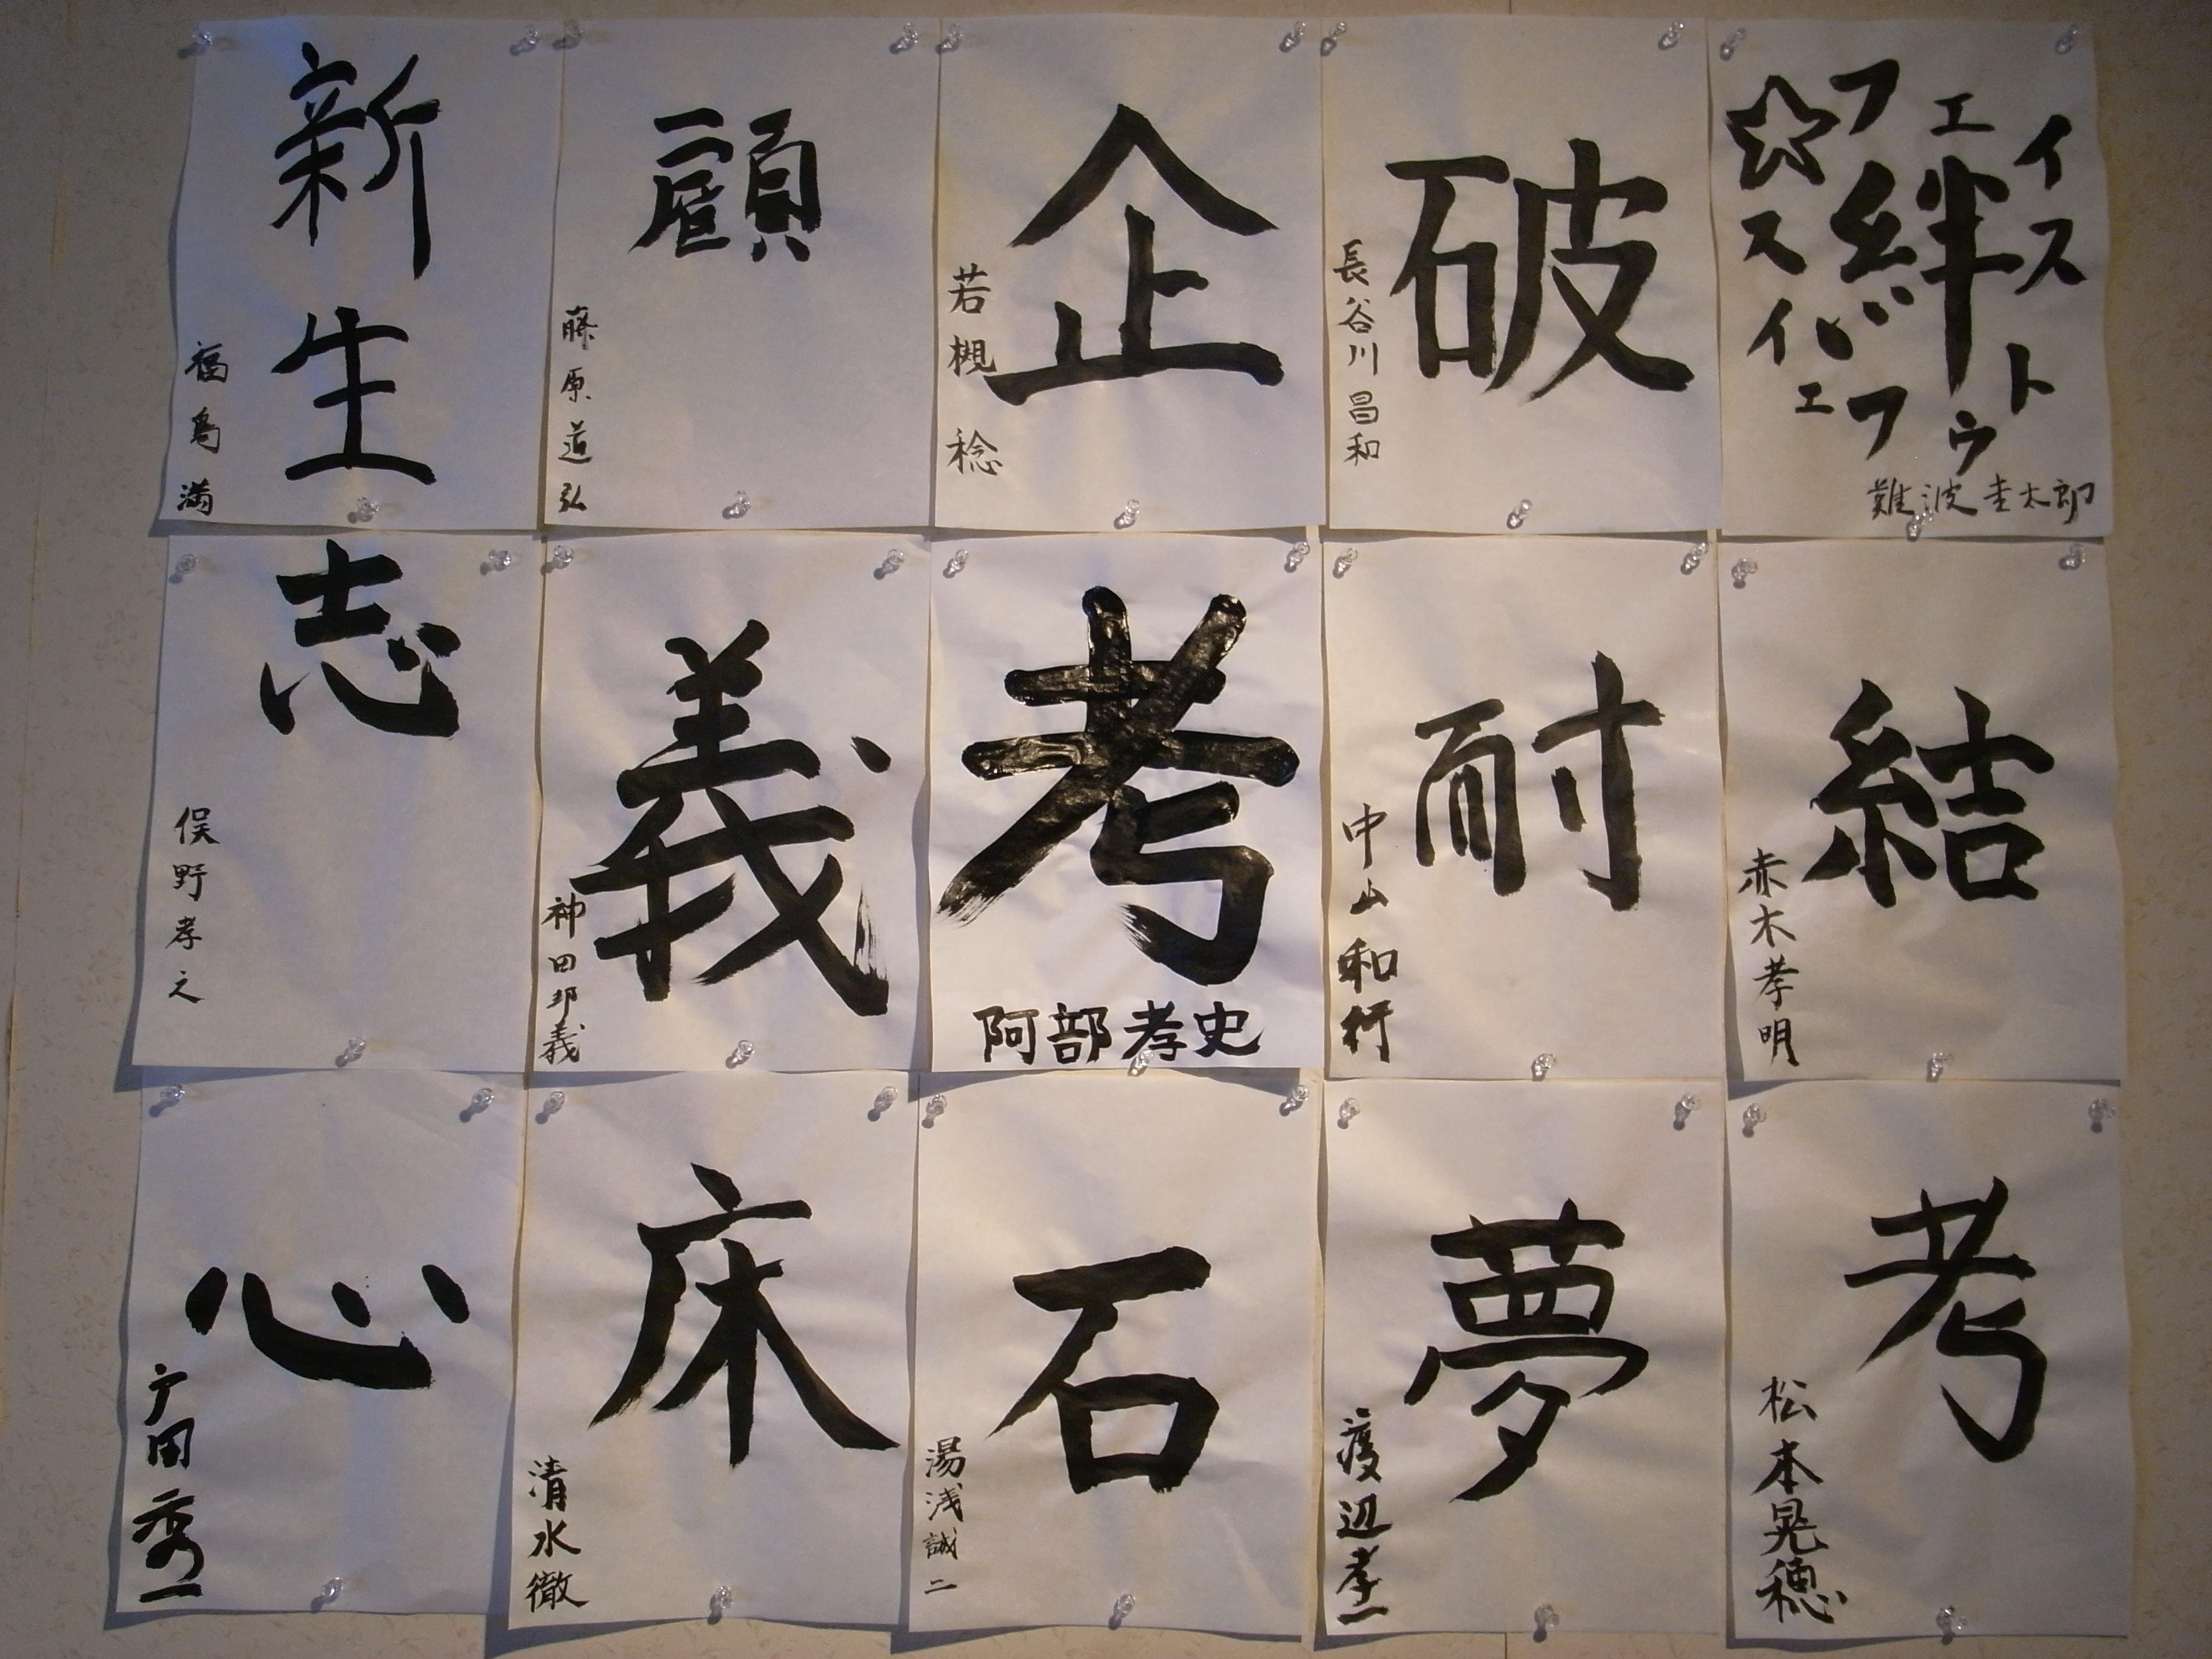 新生
福島満
顧
藤原道弘
企
若槻稔
破
長谷川昌和
☆フェイストゥフェイス
絆
難波圭太郎
志
俣野孝之
義
神田邦義
考
阿部孝史
耐
中山和行
結
赤木孝明
心
広田秀一
床
清水徹
石
湯浅誠二
夢
渡辺孝一
考
松本晃穂